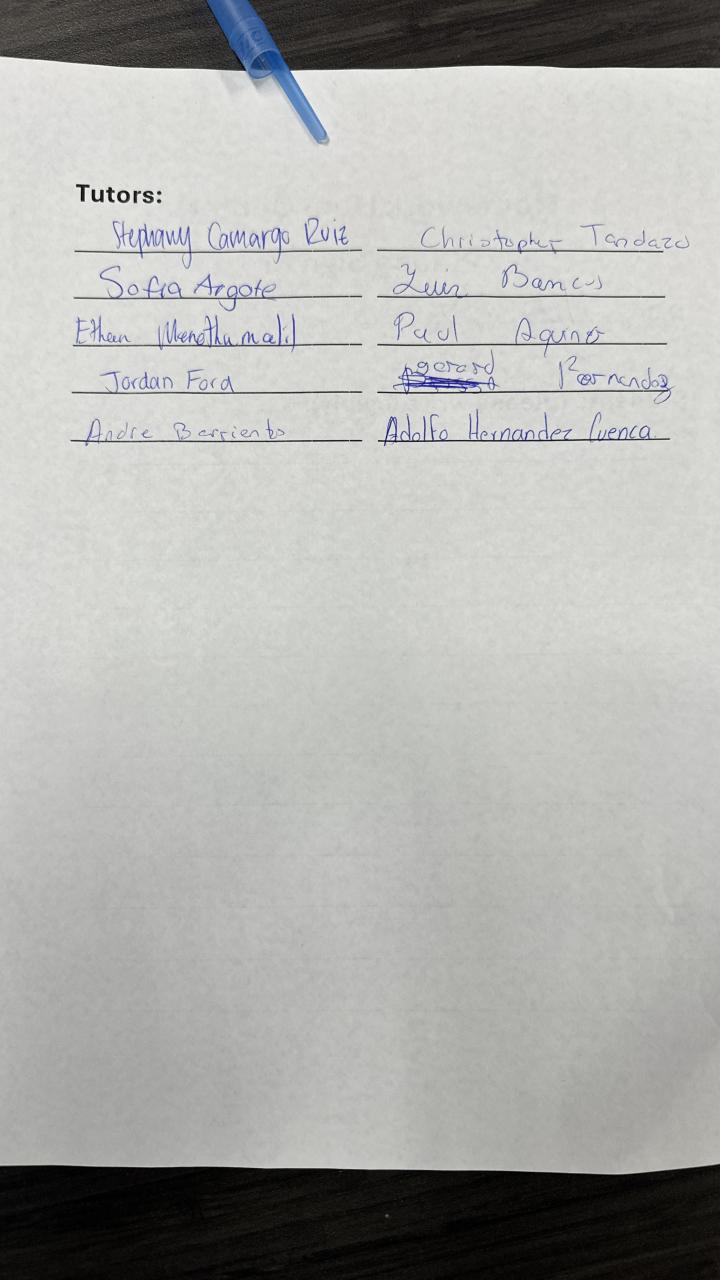 Tutors:
Stephany Camargo Ruiz
Christopher Tandazo
Sofia Argote
Luis Bancos
Ethan
Paul Aquino
Jordan Ford
gerard Fernandez
Andre Barrientos
Adolfo Hernandez Cuenca